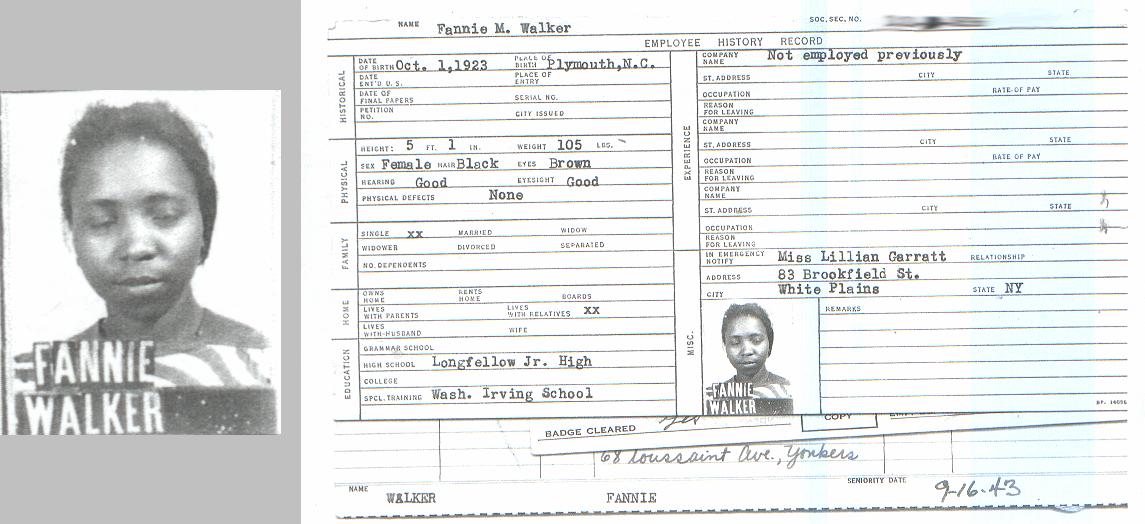 FANNIE
WALKER
NAME Fannie M. Walker
SOC. SEC. NO.
EMPLOYEE HISTORY RECORD
HISTORICAL
DATE OF BIRTH Oct. 1,1923 PLACE OF BIRTH Plymouth,N.C.
DATE ENT'D U.S. PLACE OF ENTRY
DATE OF FINAL PAPERS SERIAL NO.
PETITION NO. CITY ISSUED
PHYSICAL
HEIGHT: 5 FT. 1 IN. WEIGHT 105 LBS.
SEX Female HAIR Black EYES Brown
HEARING Good EYESIGHT Good
PHYSICAL DEFECTS None
FAMILY
SINGLE xx MARRIED WIDOW
WIDOWER DIVORCED SEPARATED
NO. DEPENDENTS
HOME
OWNS HOME RENTS HOME BOARDS
LIVES WITH PARENTS LIVES WITH RELATIVES xx
LIVES WITH-HUSBAND WIFE
EDUCATION
GRAMMAR SCHOOL
HIGH SCHOOL Longfellow Jr. High
COLLEGE
SPCL. TRAINING Wash. Irving School
EXPERIENCE
COMPANY NAME Not employed previously
ST. ADDRESS CITY STATE
OCCUPATION RATE OF PAY
REASON FOR LEAVING
COMPANY NAME
ST. ADDRESS CITY STATE
OCCUPATION RATE OF PAY
REASON FOR LEAVING
COMPANY NAME
ST. ADDRESS CITY STATE
OCCUPATION
REASON FOR LEAVING
MISC.
IN EMERGENCY NOTIFY Miss Lillian Garratt RELATIONSHIP
ADDRESS 83 Brookfield St.
CITY White Plains STATE NY
REMARKS
FANNIE
WALKER
BADGE CLEARED yes
COPY
68 Toussaint Ave., Yonkers
SENIORITY DATE 9-16-43
NAME WALKER FANNIE